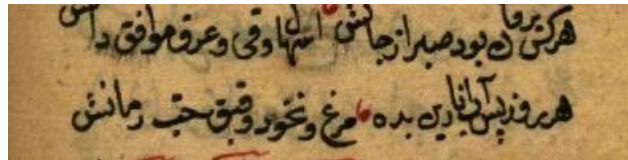 هرکش یرقان بود صبر از جانش اسهال وقی وعرق موافق دانش
هر روز پس آب انارین بده مرغ و نخود حب رمانش